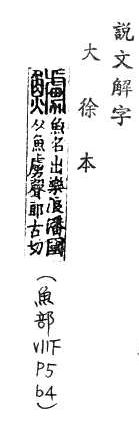 說文解字
大徐本
魚名出樂浪潘國
从魚虜聲郎古切
(魚部 VII下 P5 b4)